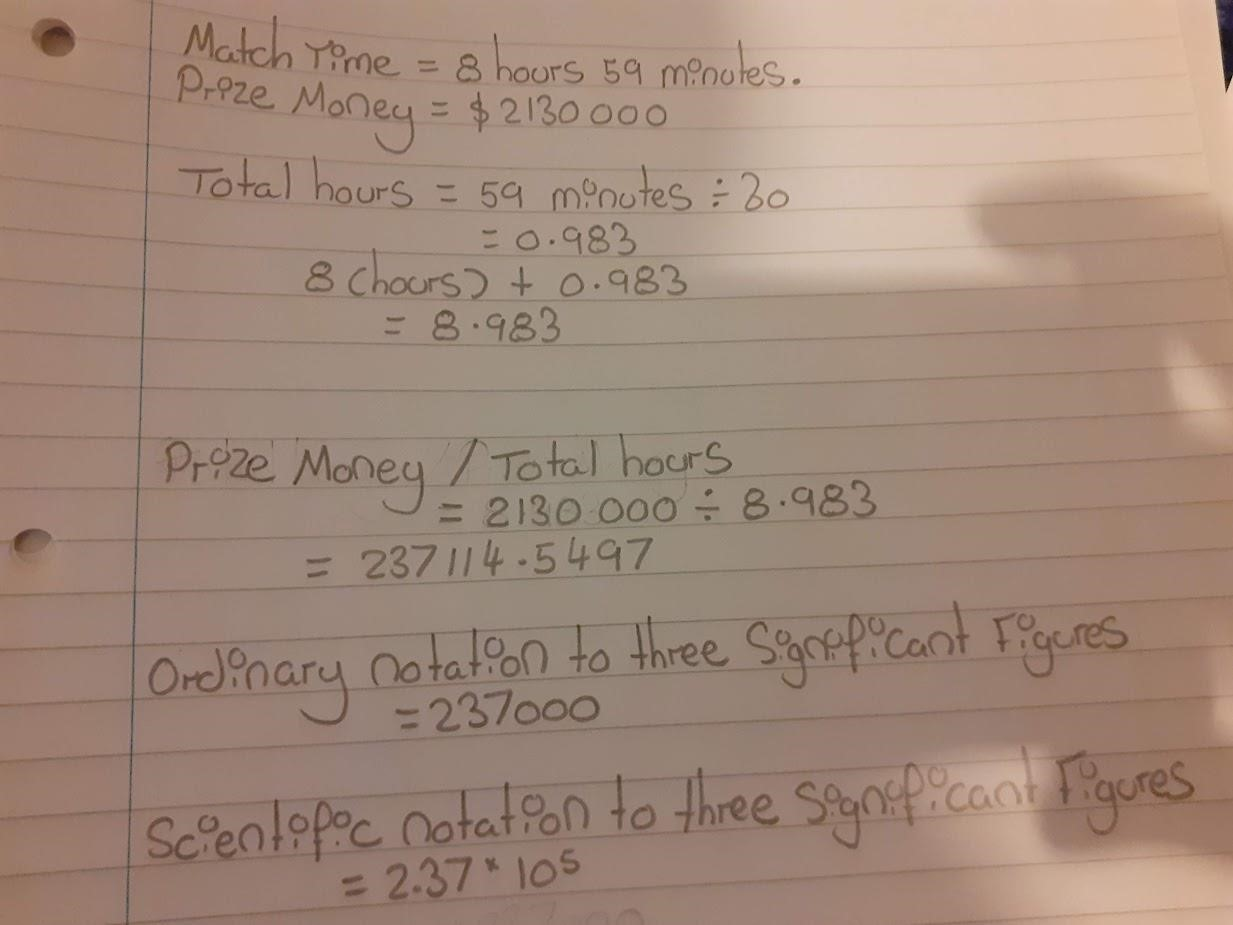 Match Time = 8 hours 59 minutes.
Prize Money = $2130 000
Total hours = 59 minutes ÷ 30
= 0.983
8 (hours) + 0.983
= 8.983
Prize Money / Total hours
= 2130 000 ÷ 8.983
= 237114.5497
Ordinary notation to three Significant Figures
= 237000
Scientific notation to three Significant Figures
= 2.37 * 10⁵